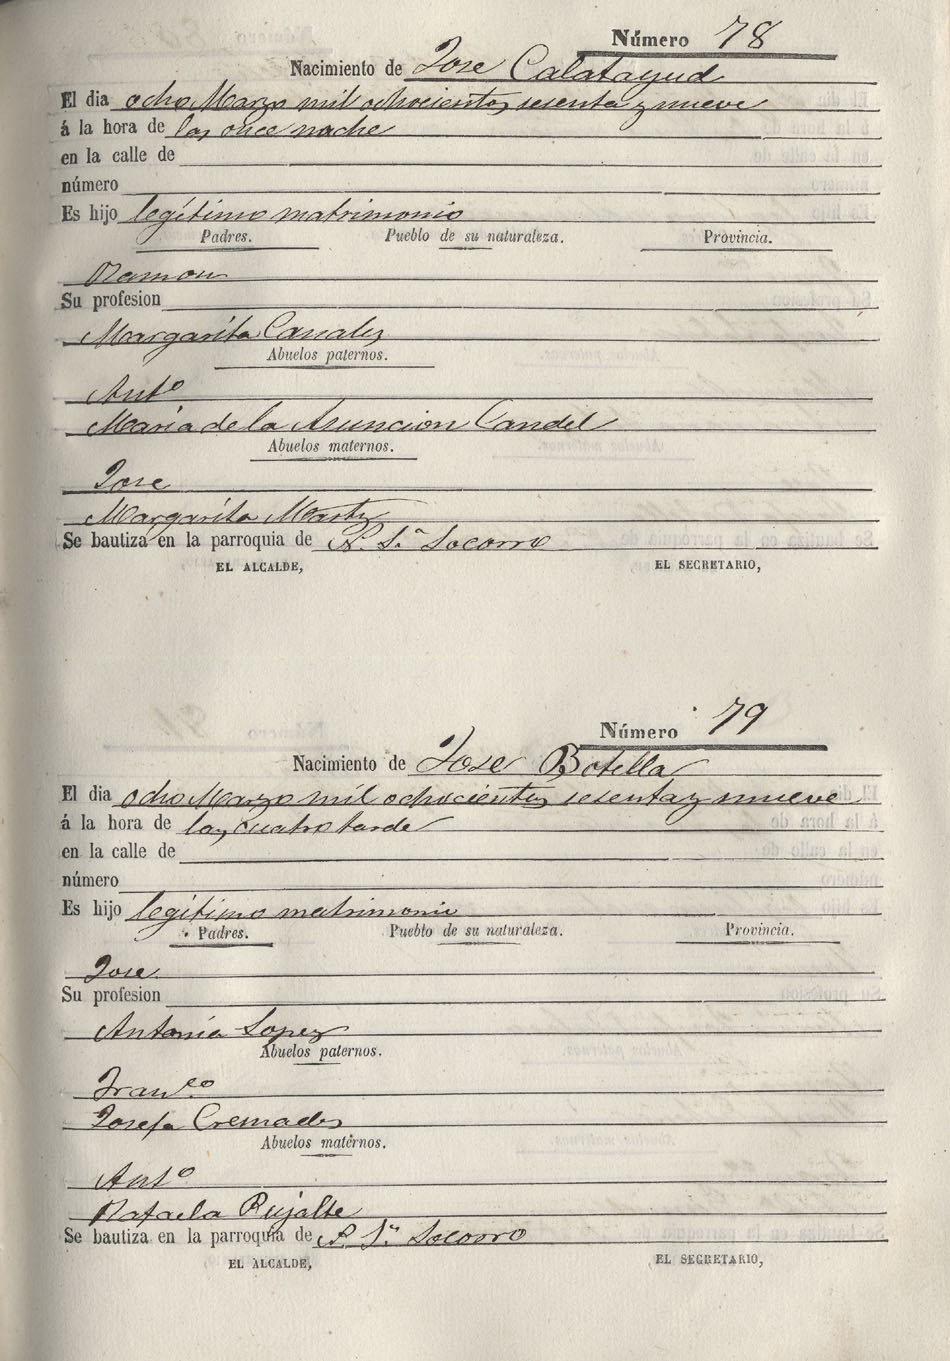 Número 78
Nacimiento de Jose Calatayud
El dia ocho Marzo mil ochocientos sesenta y nueve
á la hora de las once noche
en la calle de
número
Es hijo legítimo matrimonio
Padres. Pueblo de su naturaleza. Provincia.
Ramon
Su profesion
Margarita Canales
Abuelos paternos.
Antº
Maria de la Asuncion Candel
Abuelos maternos.
Jose
Margarita Martz
Se bautiza en la parroquia de N. Sª Socorro
EL ALCALDE, EL SECRETARIO,
Número 79
Nacimiento de Jose Botella
El dia ocho Marzo mil ochocientos sesenta y nueve
á la hora de las cuatro tarde
en la calle de
número
Es hijo legítimo matrimonio
Padres. Pueblo de su naturaleza. Provincia.
Jose
Su profesion
Antonia Lopez
Abuelos paternos.
Franco
Josefa Cremades
Abuelos maternos.
Antº
Rafaela Pujalte
Se bautiza en la parroquia de N. Sª Socorro
EL ALCALDE, EL SECRETARIO,